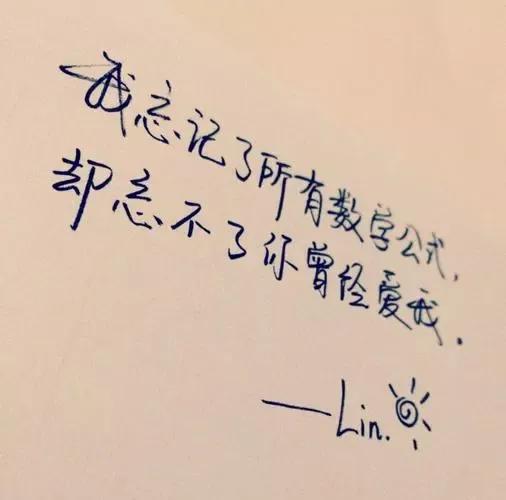 我忘记了所有数学公式,
却忘不了你曾经爱我.
——Lin.